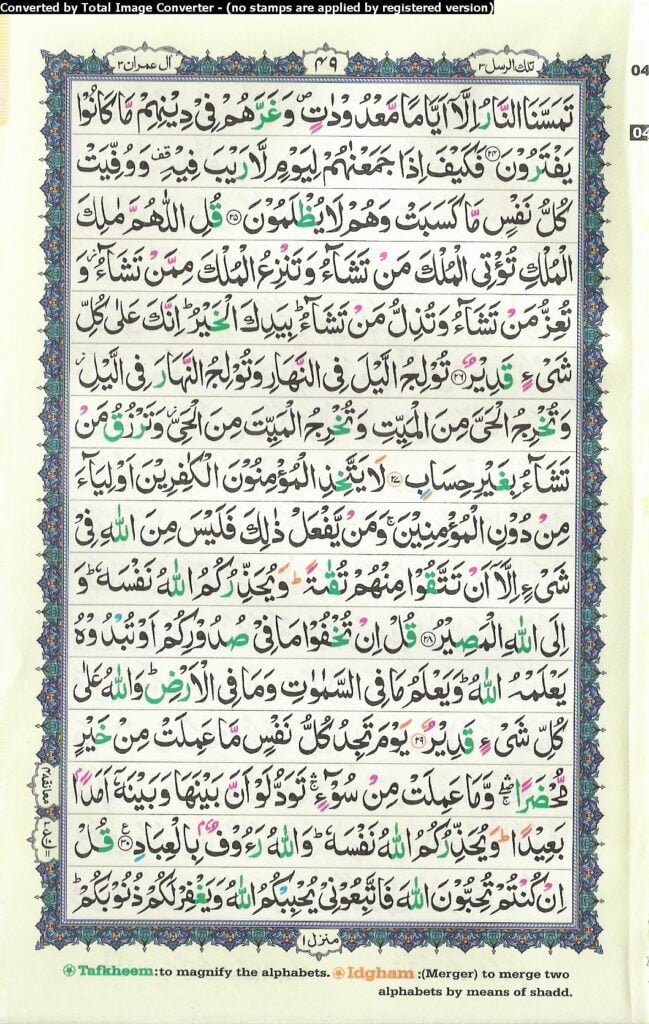 Converted by Total Image Converter - (no stamps are applied by registered version)
تلك الرسل ٣
٤٩
آل عمران ٣
04
04
تَمَسَّنَا النَّارُ اِلَّاۤ اَيَّامًا مَّعۡدُوۡدٰتٍ ࣕ وَغَرَّهُمۡ فِىۡ دِيۡنِهِمۡ مَّا كَانُوۡا
يَفۡتَرُوۡنَ ﴿۲۴﴾ فَكَيۡفَ اِذَا جَمَعۡنٰهُمۡ لِيَوۡمٍ لَّا رَيۡبَ فِيۡهِ ࣞ وَوُفِّيَتۡ
كُلُّ نَفۡسٍ مَّا كَسَبَتۡ وَهُمۡ لَا يُظۡلَمُوۡنَ ﴿۲۵﴾ قُلِ اللّٰهُمَّ مٰلِكَ
الۡمُلۡكِ تُؤۡتِى الۡمُلۡكَ مَنۡ تَشَآءُ وَتَنۡزِعُ الۡمُلۡكَ مِمَّنۡ تَشَآءُ وَ
تُعِزُّ مَنۡ تَشَآءُ وَتُذِلُّ مَنۡ تَشَآءُ ؕ بِيَدِكَ الۡخَيۡرُ ؕ اِنَّكَ عَلٰى كُلِّ
شَىۡءٍ قَدِيۡرٌ ﴿۲۶﴾ تُوۡلِجُ الَّيۡلَ فِى النَّهَارِ وَتُوۡلِجُ النَّهَارَ فِى الَّيۡلِ
وَتُخۡرِجُ الۡحَىَّ مِنَ الۡمَيِّتِ وَتُخۡرِجُ الۡمَيِّتَ مِنَ الۡحَىِّ وَتَرۡزُقُ مَنۡ
تَشَآءُ بِغَيۡرِ حِسَابٍ ﴿۲۷﴾ لَا يَتَّخِذِ الۡمُؤۡمِنُوۡنَ الۡكٰفِرِيۡنَ اَوۡلِيَآءَ
مِنۡ دُوۡنِ الۡمُؤۡمِنِيۡنَ ۚ وَمَنۡ يَّفۡعَلۡ ذٰ لِكَ فَلَيۡسَ مِنَ اللّٰهِ فِىۡ
شَىۡءٍ اِلَّاۤ اَنۡ تَتَّقُوۡا مِنۡهُمۡ تُقٰٮةً ؕ وَيُحَذِّرُكُمُ اللّٰهُ نَفۡسَهٗ ؕ وَ
اِلَى اللّٰهِ الۡمَصِيۡرُ ﴿۲۸﴾ قُلۡ اِنۡ تُخۡفُوۡا مَا فِىۡ صُدُوۡرِكُمۡ اَوۡ تُبۡدُوۡهُ
يَعۡلَمۡهُ اللّٰهُ ؕ وَيَعۡلَمُ مَا فِى السَّمٰوٰتِ وَمَا فِى الۡاَرۡضِ ؕ وَاللّٰهُ عَلٰى
كُلِّ شَىۡءٍ قَدِيۡرٌ ﴿۲۹﴾ يَوۡمَ تَجِدُ كُلُّ نَفۡسٍ مَّا عَمِلَتۡ مِنۡ خَيۡرٍ
مُّحۡضَرًا ۛۖۚ وَّمَا عَمِلَتۡ مِنۡ سُوۡٓءٍ ۛۚ تَوَدُّ لَوۡ اَنَّ بَيۡنَهَا وَبَيۡنَهٗۤ اَمَدًۢا
بَعِيۡدًا ؕ وَيُحَذِّرُكُمُ اللّٰهُ نَفۡسَهٗ ؕ وَاللّٰهُ رَءُوۡفٌۢ بِالۡعِبَادِ ﴿۳۰﴾ قُلۡ
اِنۡ كُنۡتُمۡ تُحِبُّوۡنَ اللّٰهَ فَاتَّبِعُوۡنِىۡ يُحۡبِبۡكُمُ اللّٰهُ وَيَغۡفِرۡ لَـكُمۡ ذُنُوۡبَكُمۡؕ
منزل ١
Tafkheem:to magnify the alphabets. Idgham :(Merger) to merge two
alphabets by means of shadd.